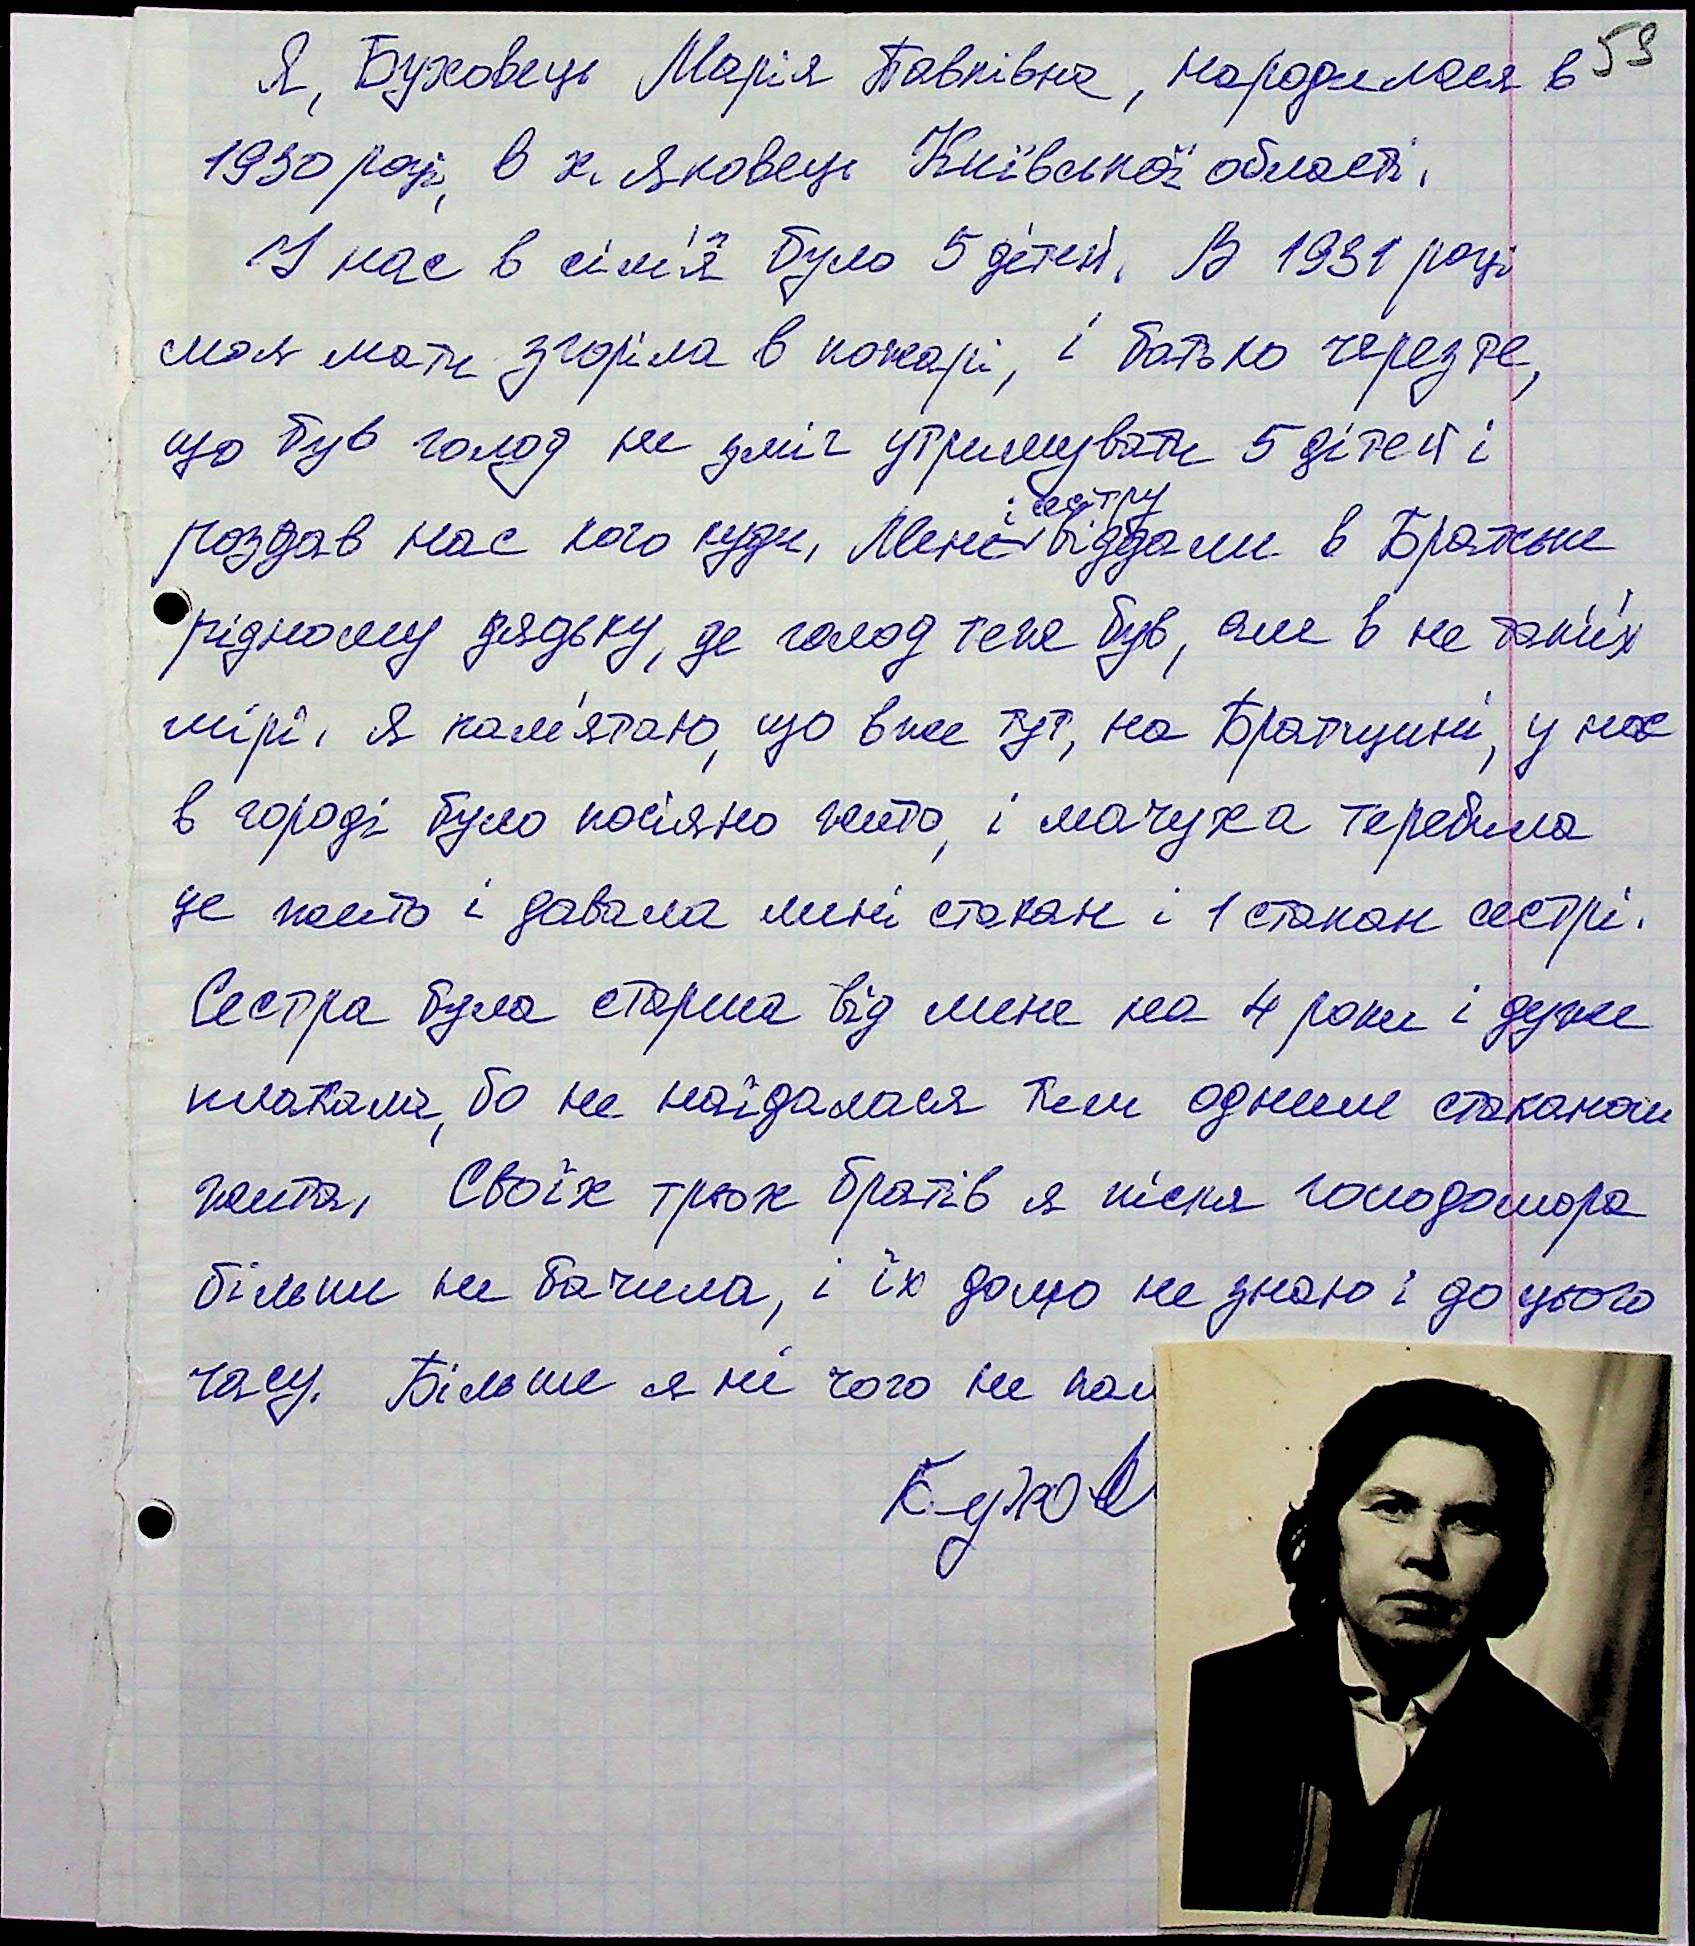 53
Я, Буховець Марія Павлівна, народилася в
1930 році, в х. Яковець Київської області.
У нас в сім'ї було 5 дітей. В 1931 році
моя мати згоріла в пожарі, і батько через те,
що був голод не зміг утримувати 5 дітей і
роздав нас кого куди. Мене і сестру віддали в Братське
рідному дядьку, де голод теж був, але в не таких
мірі. Я пам'ятаю, що вже тут, на Братщині, у нас
в городі було посіяно жито, і мачуха теребила
це жито і давала мені стакан і 1 стакан сестрі.
Сестра була старша від мене на 4 роки і дуже
плакала, бо не наїдалася тим одним стаканом
жита. Своїх трьох братів я після голодомора
більше не бачила, і їх долю не знаю і до цього
часу. Більше я ні чого не пам
Бухов